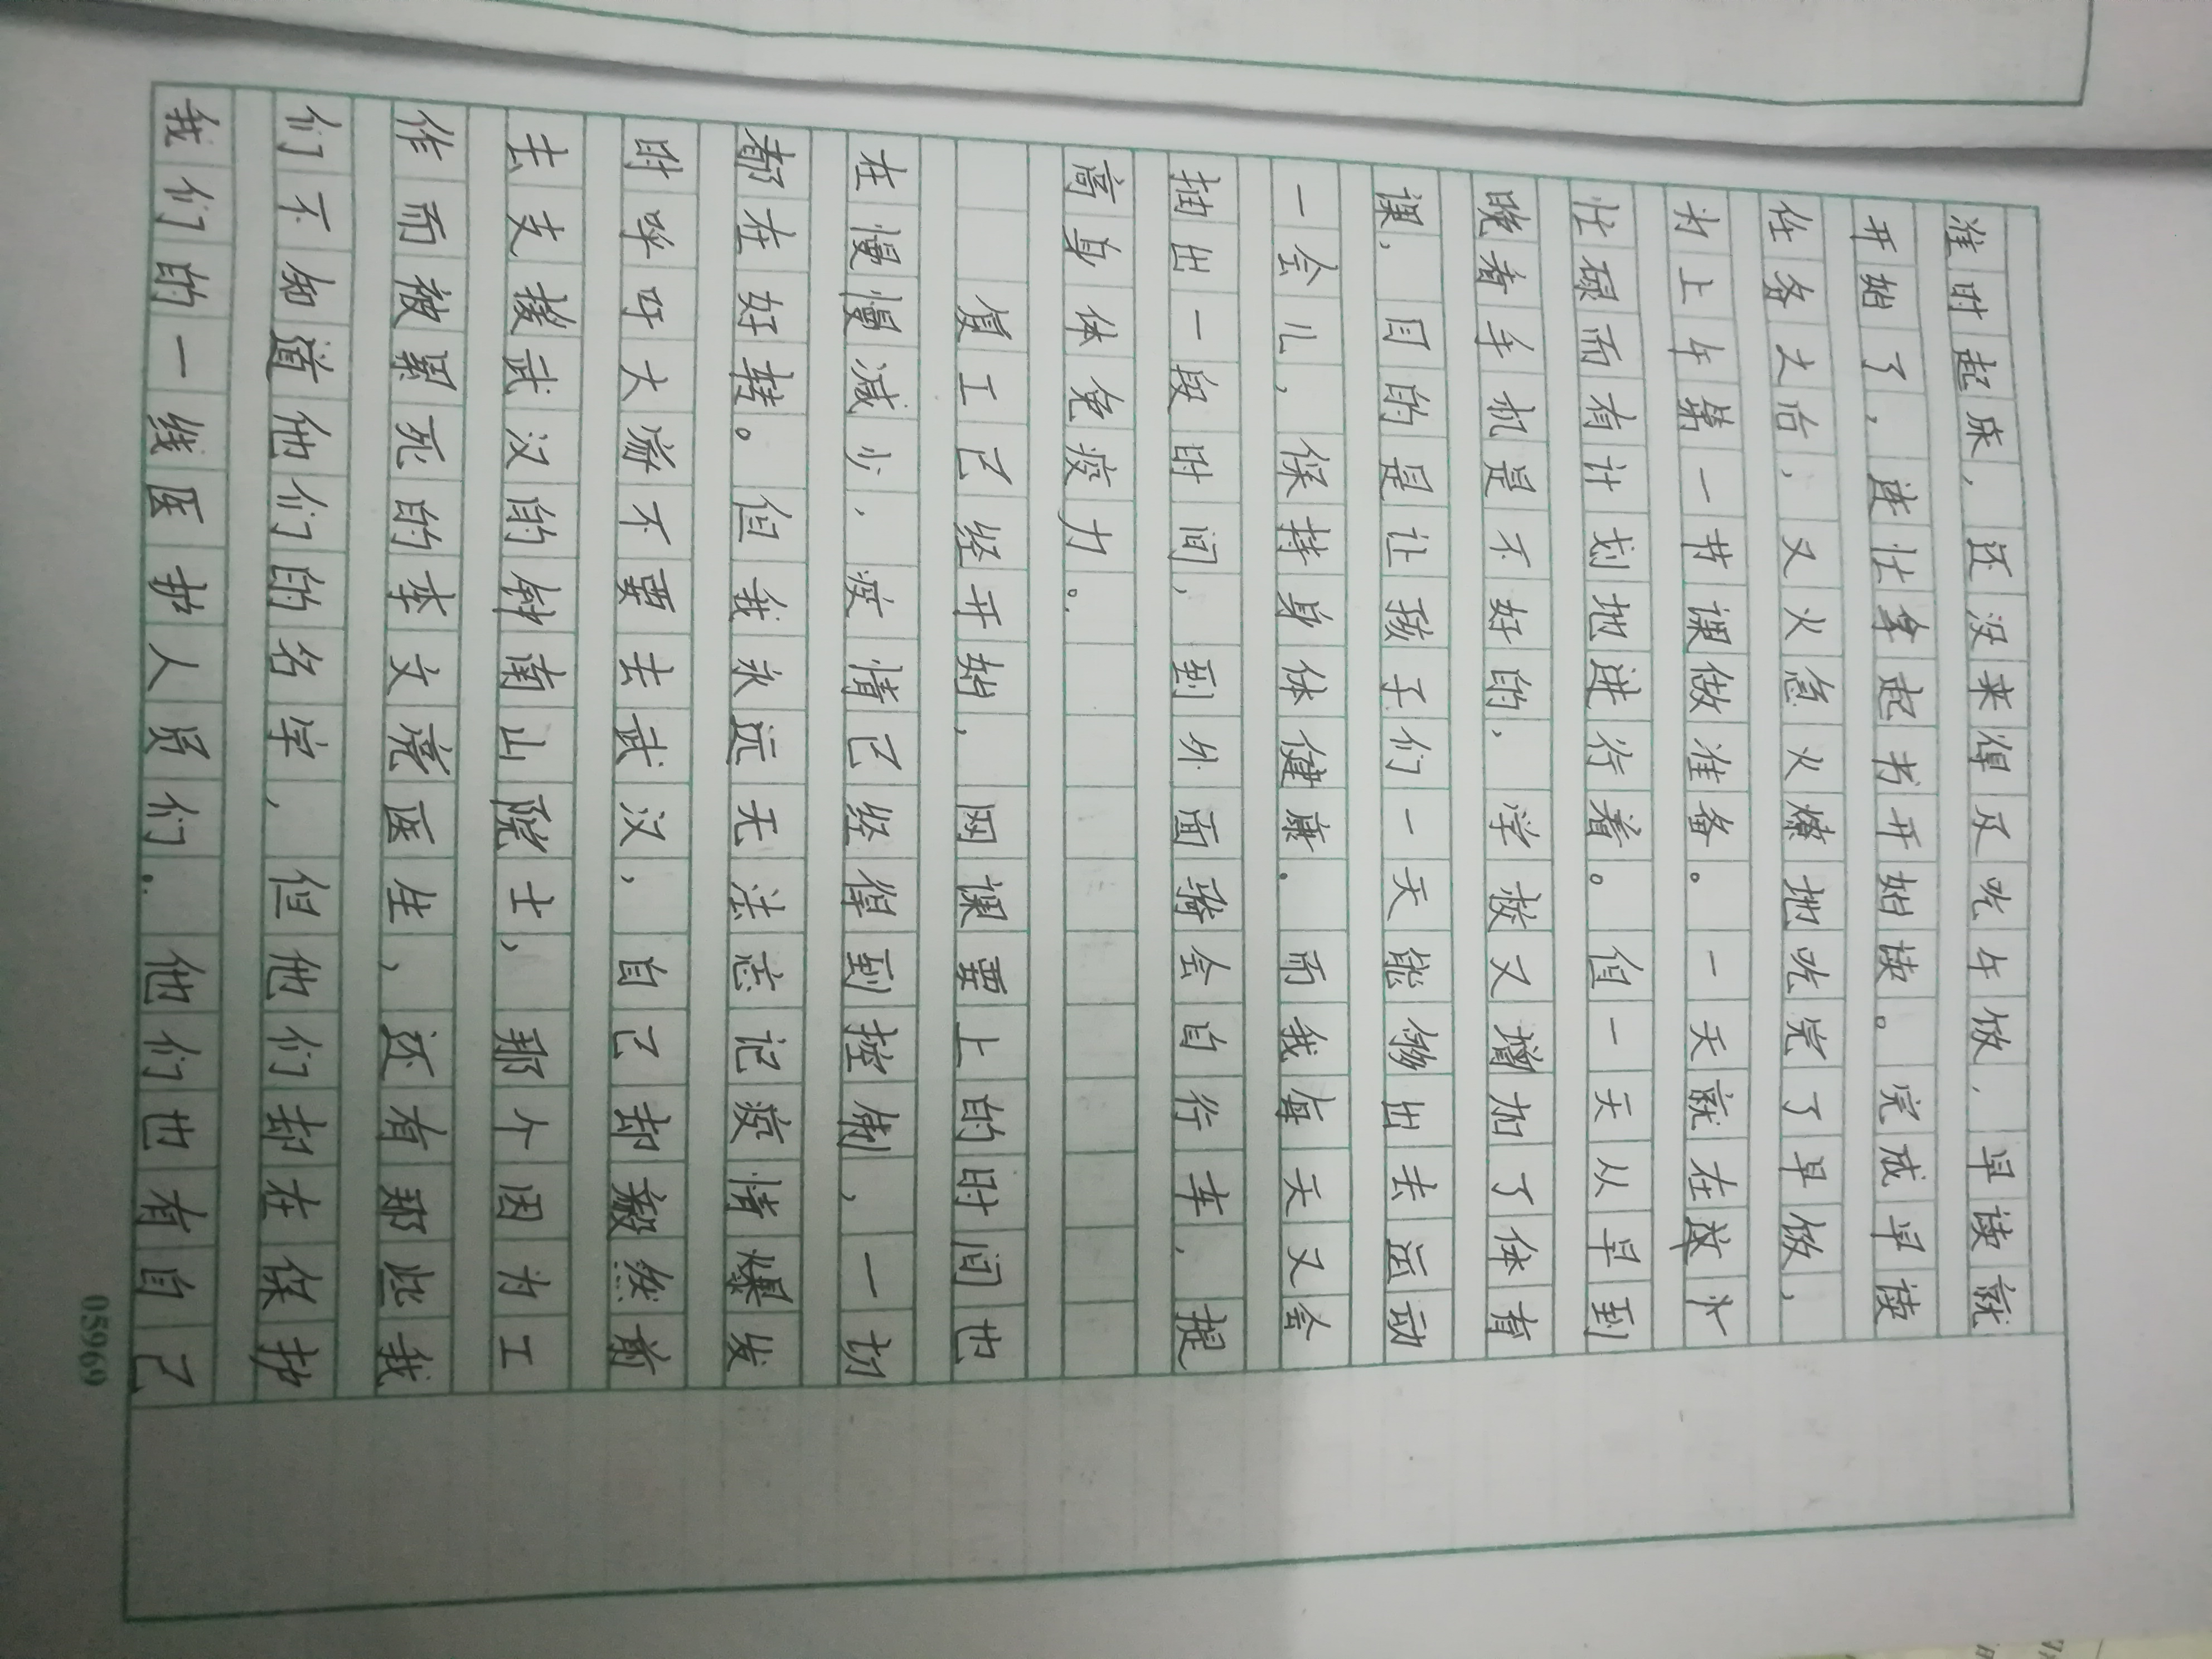 准时起床，还没来得及吃午饭，早读就
开始了，连忙拿起书开始读。完成早读
任务之后，又火急火燎地吃完了早饭，
为上午第一节课做准备。一天就在这个
忙碌而有计划地进行着。但一天从早到
晚看手机是不好的，学校又增加了体育
课，目的是让孩子们一天能够出去运动
一会儿，保持身体健康。而我每天又会
抽出一段时间，到外面骑会自行车，提
高身体免疫力。
复工已经开始，网课要上的时间也
在慢慢减少，疫情已经得到控制，一切
都在好转。但我永远无法忘记疫情爆发
时呼吁大家不要去武汉，自己却毅然前
去支援武汉的钟南山院士，那个因为工
作而被累死的李文亮医生，还有那些我
们不知道他们的名字，但他们却在保护
我们的一线医护人员们。他们也有自己
05969